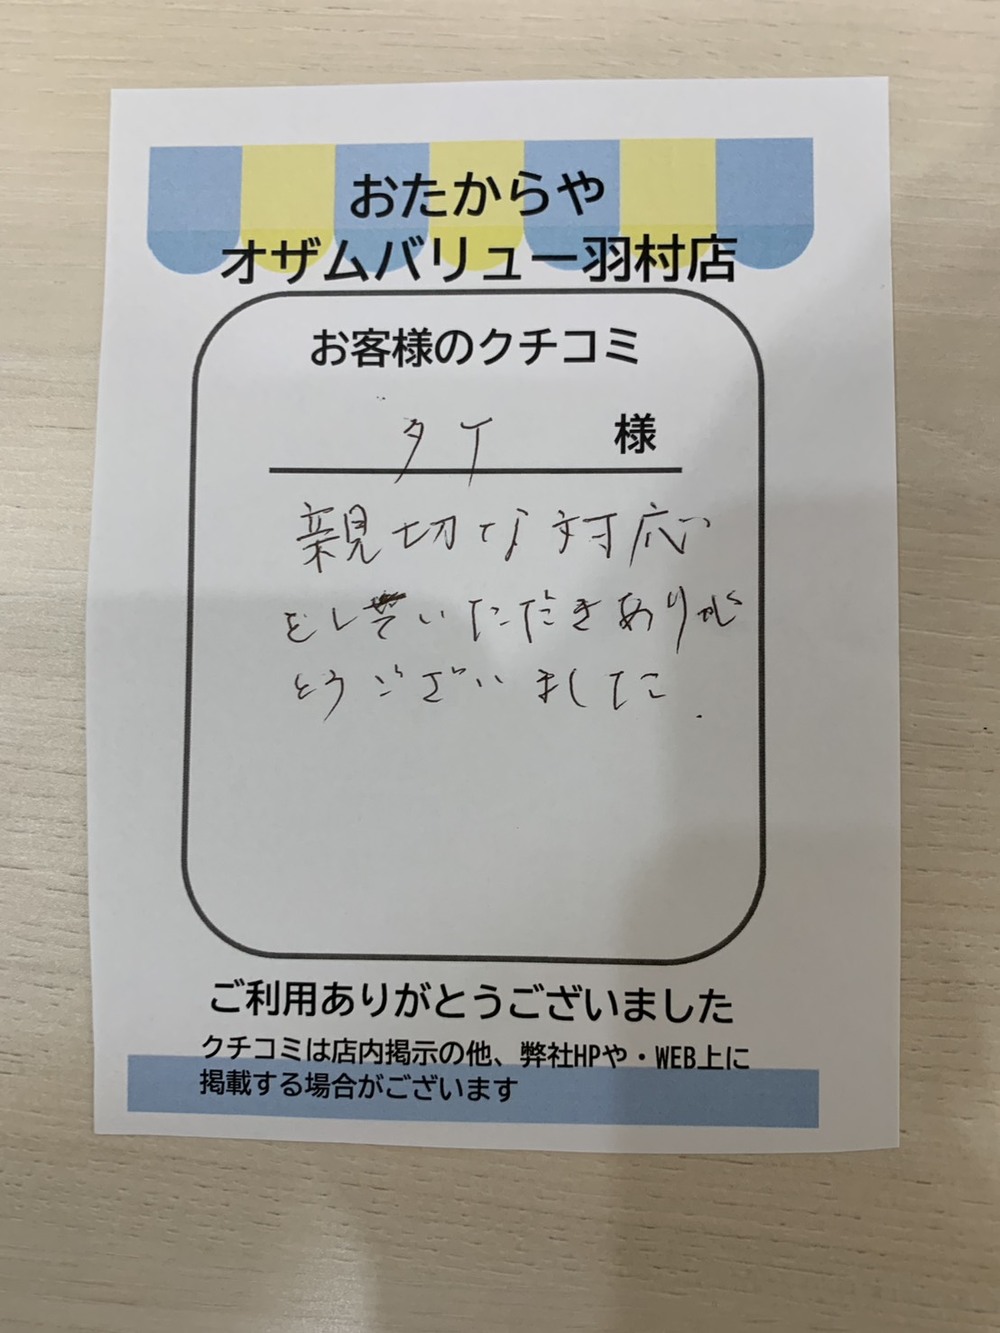 おたからや
オザムバリュー羽村店
お客様のクチコミ
タイ 様
親切な対応
をしていただきありが
とうございました.
ご利用ありがとうございました
クチコミは店内掲示の他、弊社HPや・WEB上に
掲載する場合がございます